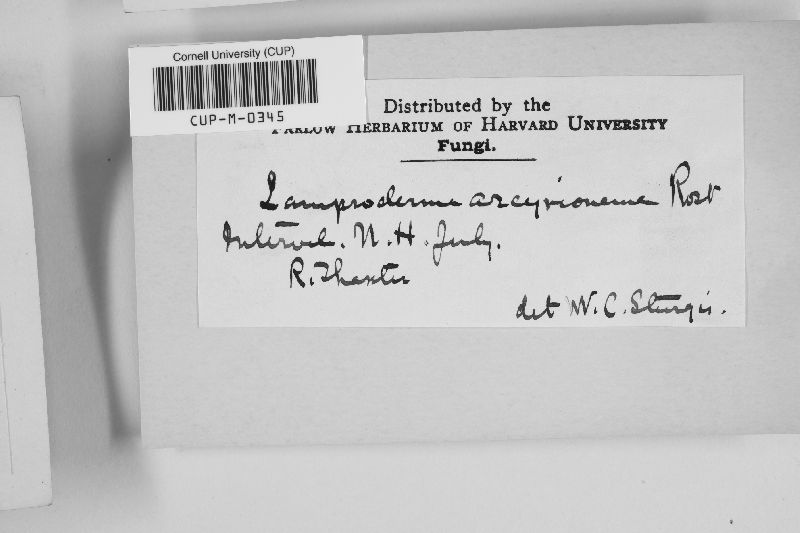 Cornell University (CUP)
CUP-M-0345
Distributed by the
Farlow Herbarium of Harvard University
Fungi.
Lamproderma arcyrionema Rost
Intervale. N.H. July.
R. Thaxter
det W. C. Sturgis.